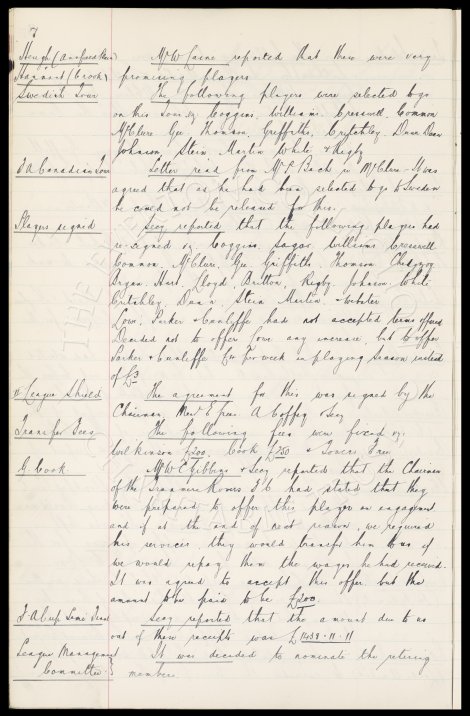 7
Keogh (Annfield Plain)
Stannard (Crook)
Mr W Caine reported that these were very
promising players
Swedish Tour
The following players were selected to go
on this Tour, viz Coggins, Williams, Cresswell, Common
McClure, Gee, Thomson, Griffiths, Critchley, Dunn, Dean
Johnson, Stein, Martin, White & Rigby
F A Canadian Tour
Letter read from Mr P. Bach re McClure. It was
agreed that as he had been selected to go to Sweden
he could not be released for this.
Players re-signed
Secy reported that the following players had
re-signed viz Coggins, Sagar, Williams, Cresswell
Common, McClure, Gee, Griffiths, Thomson, Chedgzoy
Bryan, Hart, Lloyd, Britton, Rigby, Johnson, White
Critchley, Dunn, Stein, Martin, & Webster
Lowe, Parker & Cunliffe had not accepted terms offered
Decided not to offer Lowe any increase, but to offer
Parker & Cunliffe £4 per week in playing season instead
of £3
League Shield
The agreement for this was signed by the
Chairman, Mess E Green, A Coffey & Secy
Transfer Fees
The following fees were fixed viz
Wilkinson £200, Cook £250 & Jones Free
G. Cook
Mr W C Gibbins & Secy reported that the Chairman
of the Tranmere Rovers F.C. had stated that they
were prepared to offer this player an engagement
and if at the end of next season, we required
his services they would transfer him to us if
we would repay them the wages he had received.
It was agreed to accept this offer but the
amount to be paid to be £200.
F A Cup Semi Final
Secy reported that the amount due to us
out of these receipts was £1439-11-11
League Management
Committee
It was decided to nominate the retiring
members.